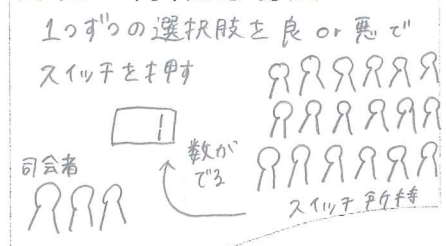 1つずつの選択肢を良 or 悪で
スイッチを押す
1
数が
でる
司会者
スイッチ所持